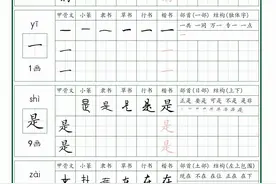 yī
一
1画
甲骨文 小篆 隶书 草书 行书 楷书 部首(一部) 结构(独体字)
一 一 一 一 一 一 一共 一同 万一 专一 一点
一
shì
是
9画
甲骨文 小篆 隶书 草书 行书 楷书 部首(日部) 结构(上下)
是 是 是 是 是 正是 要是 可是 不是 是非
是 是
是 是
zài
在
甲骨文 小篆 隶书 草书 行书 楷书 部首(土部) 结构(左上包围)
在 在 在 在